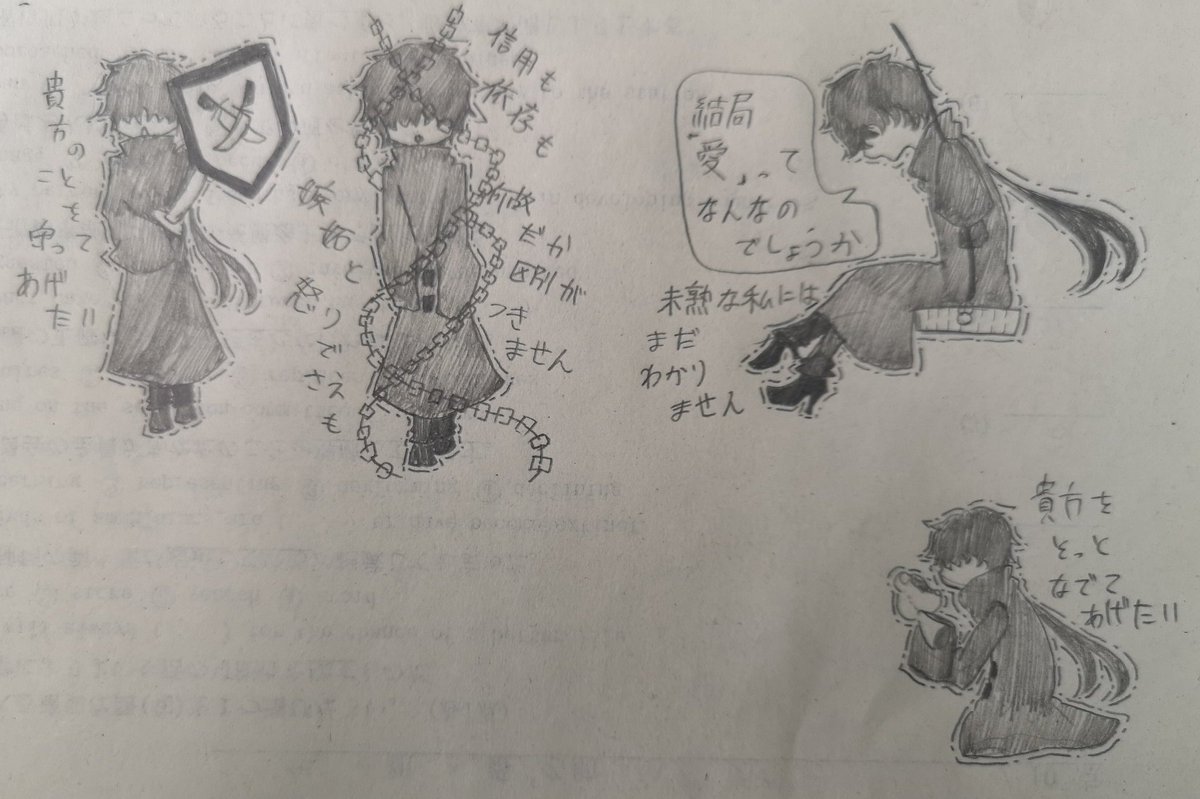 貴方の
ことを
守って
あげ
たい
信用も
依存も
嫉妬と
怒りでさえも
何故だか
区別が
つき
ません
結局
「愛」って
なんなの
でしょうか
未熟な私には
まだ
わかり
ません
貴方を
そっと
なでて
あげたい